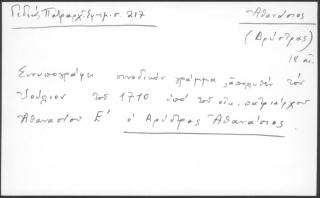 Γεδεών, Πατριαρχ. Ἐφημ. σ. 217
Ἀθανάσιος
(Δρύστρας)
18 αἰ.
Συνυπογράφει συνοδικὸν γράμμα, ἀπολυθὲν τὸν
Ἰούλιον τοῦ 1710 ὑπὸ τοῦ οἰκ. πατριάρχου
Ἀθανασίου Ε' ὁ Δρύστρας Ἀθανάσιος.